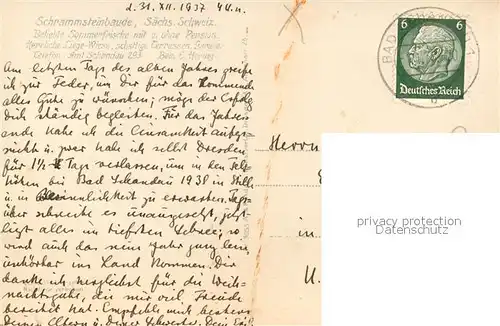 d. 31. XII. 1937 4 U. n.
Schrammsteinbaude, Sächs. Schweiz.
Beliebte Sommerfrische mit u. ohne Pension.
Herrliche Lage, schattige Terrassen,
Telefon: Amt Schandau 293. Bes. E. Häring.
Am letzten Tag des alten Jahres greife
ich zur Feder, um Dir für das kommende
alles Gute zu wünschen; möge der Erfolg
Dich ständig begleiten. Für das Jahres-
ende habe ich die Einsamkeit aufge-
sucht u. zwar habe ich selbst Dresden
für 1½ Tag verlassen, um in den
bei Bad Schandau 1938 in Stille
u. in Besinnlichkeit zu erwarten. Tags-
über schneite es unausgesetzt, jetzt
liegt alles im tiefsten Schnee; so
wird auch das neue Jahr ganz leise,
unhörbar ins Land kommen. Dir
danke ich herzlichst für die Weih-
nachtsgabe, die mir viel Freude
bereitet hat. Empfehle mich bestens
Deinen Eltern u. Deiner Schwester. Dein
Herrn
in
U.
BAD SCHANDAU
6 6
Deutsches Reich
b
playing-cards.us
playing-cards.us